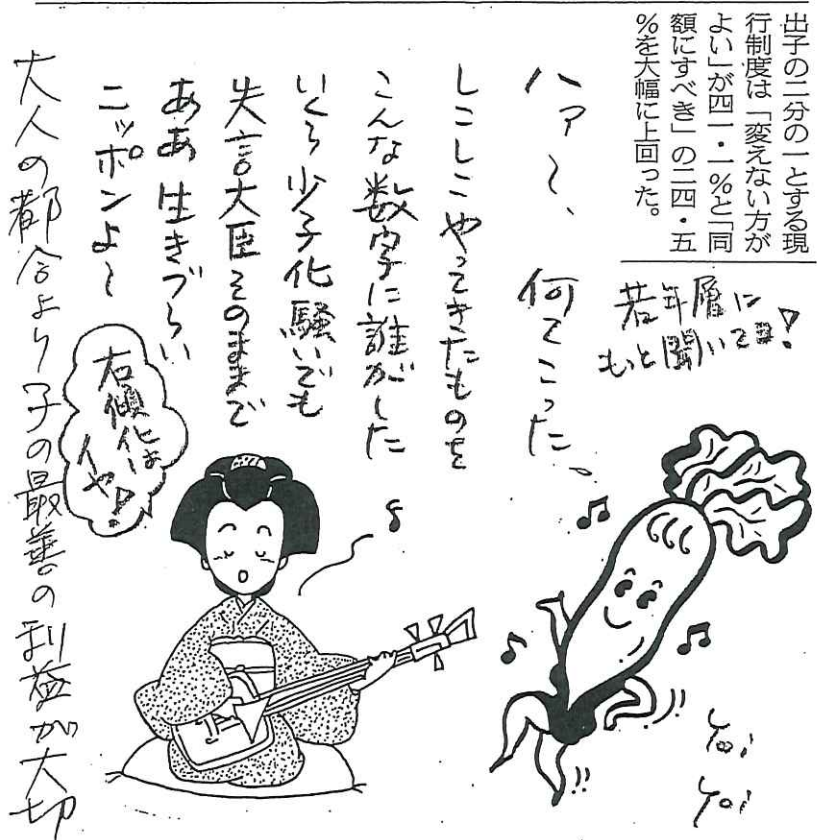 出子の二分の一とする現
行制度は「変えない方が
よい」が四一・一%と「同
額にすべき」の二四・五
%を大幅に上回った。
若年層に
もっと聞いてヨ!
ハァ〜、何てこった。
しこしこやってきたものを
こんな数字に誰がした
いくら少子化騒いでも
失言大臣そのままで
ああ生きづらい
ニッポンよ〜
右傾化は
イヤ!
大人の都合より子の最善の利益が大切
Yoi
Yoi